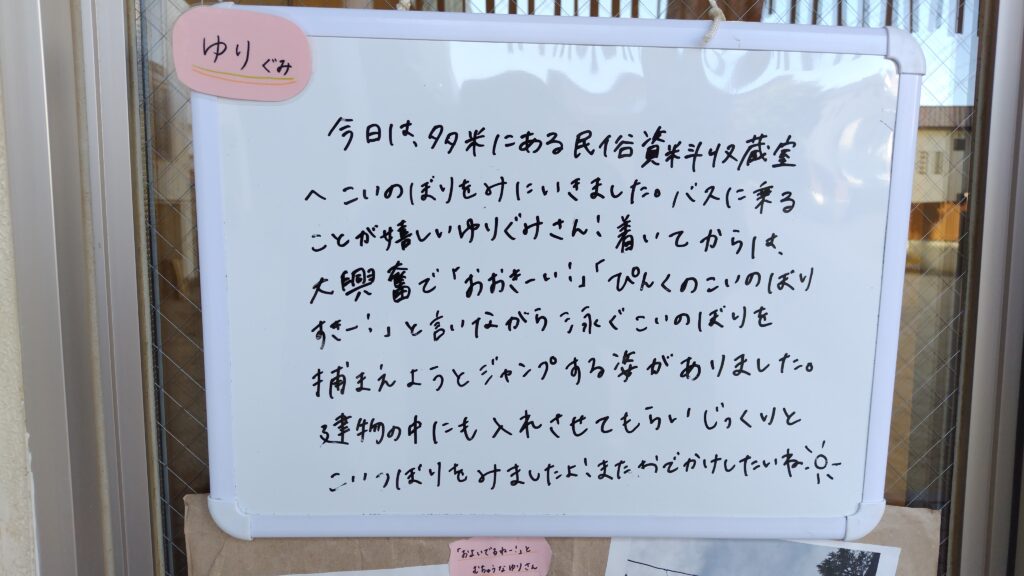 ゆりぐみ
今日は、多米にある民俗資料収蔵室
へこいのぼりをみにいきました。バスに乗る
ことが嬉しいゆりぐみさん!着いてからは、
大興奮で「おおきーい!」「ぴんくのこいのぼり
すきー!」と言いながら泳ぐこいのぼりを
捕まえようとジャンプする姿がありました。
建物の中にも入れさせてもらいじっくりと
こいのぼりをみましたよ!またおでかけしたいね
「およいでるねー!」と
むちゅうなゆりさん